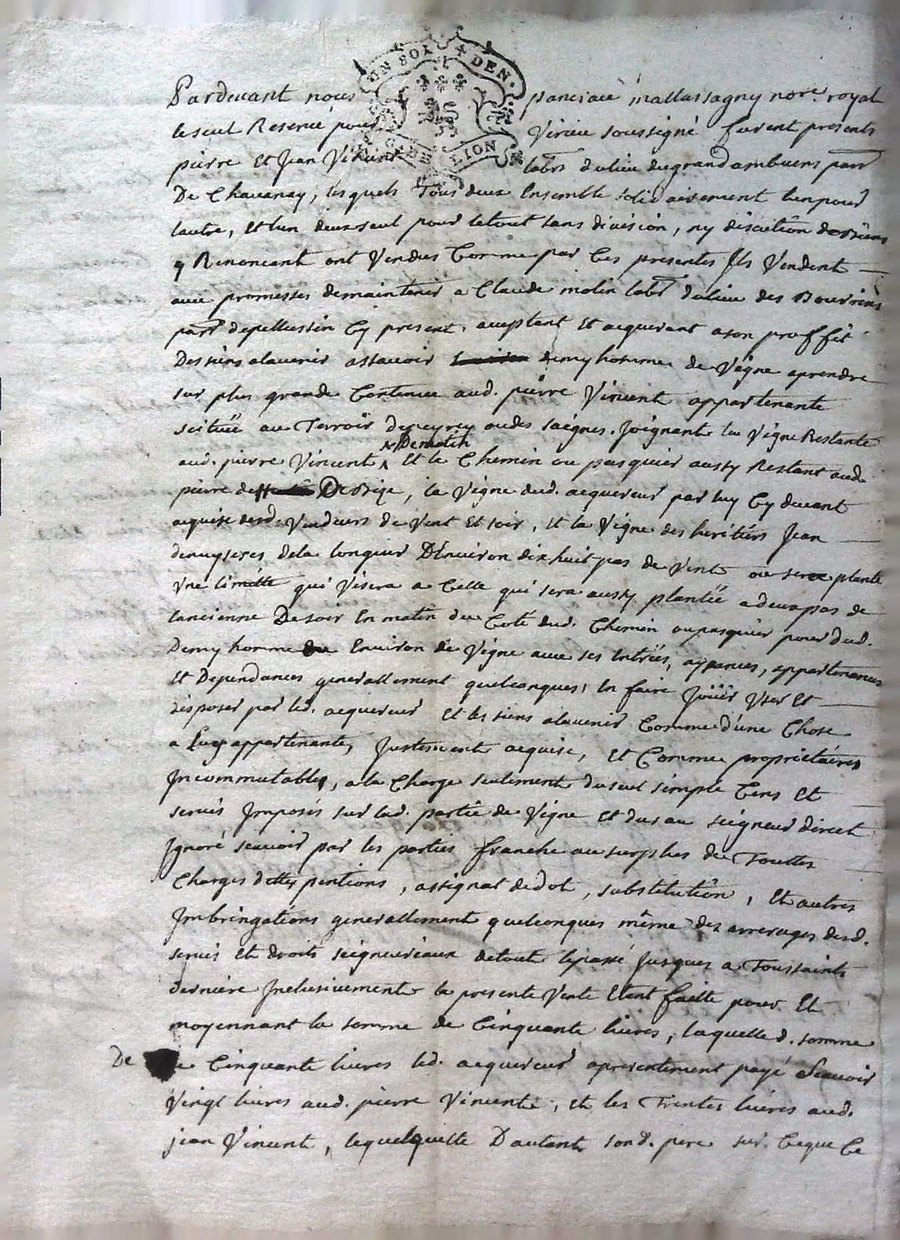 UN SOL + DEN.
GEN LION
Pardevant nous panciacé mallassagny nore. royal
le seul Reservé pour Virieu soussigné furent presents
pierre Et Jean Vincent labrs dulieu du grand ambuens parr
De Chavanay, lesquels Tous deux Ensemble solidairement lun pour
lautre, Et lun deux seul pour letout sans division, ny discution
y Renoncant ont Vendus Comme par Ces presentes Ils Vendent
avec promesses demaintenir a Claude molin labr dulieu des Bourrins
parr depellussin Cy present, aceptant Et acquerant a son proffit
Des siens alavenir assavoir demy homme de Vigne aprendre
sur plus grande Contenue aud. pierre Vincent appartenante
scituée au Terroir depeyrey ou des saignes. Joignant la Vigne Restante
x De matin
aud. pierre Vincent x Et le Chemin ou pasquier aussy Restant aud.
pierre De Bize, la Vigne dud. acquereur par luy Cy devant
acquise desd. Vendeurs de Vent Et soir, Et la Vigne des heritiers Jean
dela longueur D'Environ dix huit pas de Vent ou sera planté
Une limitte qui Visera a Celle qui sera aussy plantée a deux pas de
lancienne De soir En matin du Coté dud. Chemin ou pasquier pour Dud.
Demy homme Environ de Vigne avec ses Entrées, aysances, appartenances
Et Dependances generallement quelconques, En faire Joüir User Et
disposer par led. acquereur Et les siens alavenir Comme d'une Chose
a Luy appartenante, Justement acquise, Et Comme propriétaires
Incommutables, a la Charge seulement du seul simple Cens Et
servis Imposés sur lad. partie de Vigne Et dus au seigneur direct
Ignoré scavoir par les parties franche au surplus de Touttes
Charges dettes pentions, assignat dedot, substitution, Et autres
Imbringations generallement quelconques même des arrerages desd.
servis Et droits seigneuriaux detout lepassé Jusques a Toussaint
derniére Inclusivement la presente Vente Etent faitte pour Et
moyennant la somme de Cinquante livres, laquelle d. somme
De Cinquante livres led. acquereur apresentement payé Scavoir
Vingt livres aud. pierre Vincent, Et les Trentes livres aud.
jean Vincent, lequel quitte D'autant sond. pere sur Ceque Ce